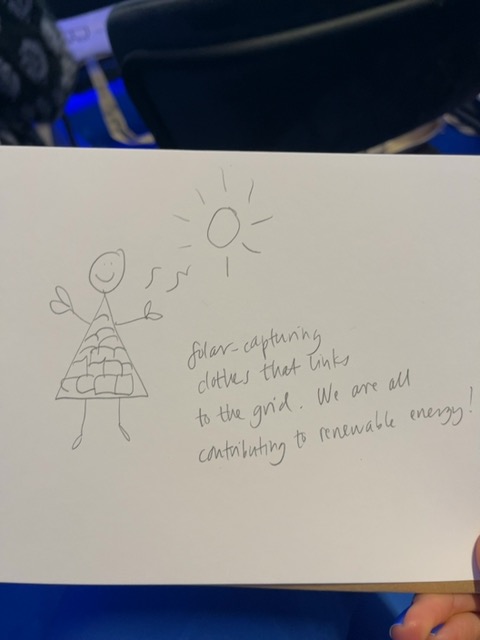 Solar-capturing
clothes that links
to the grid. We are all
contributing to renewable energy!